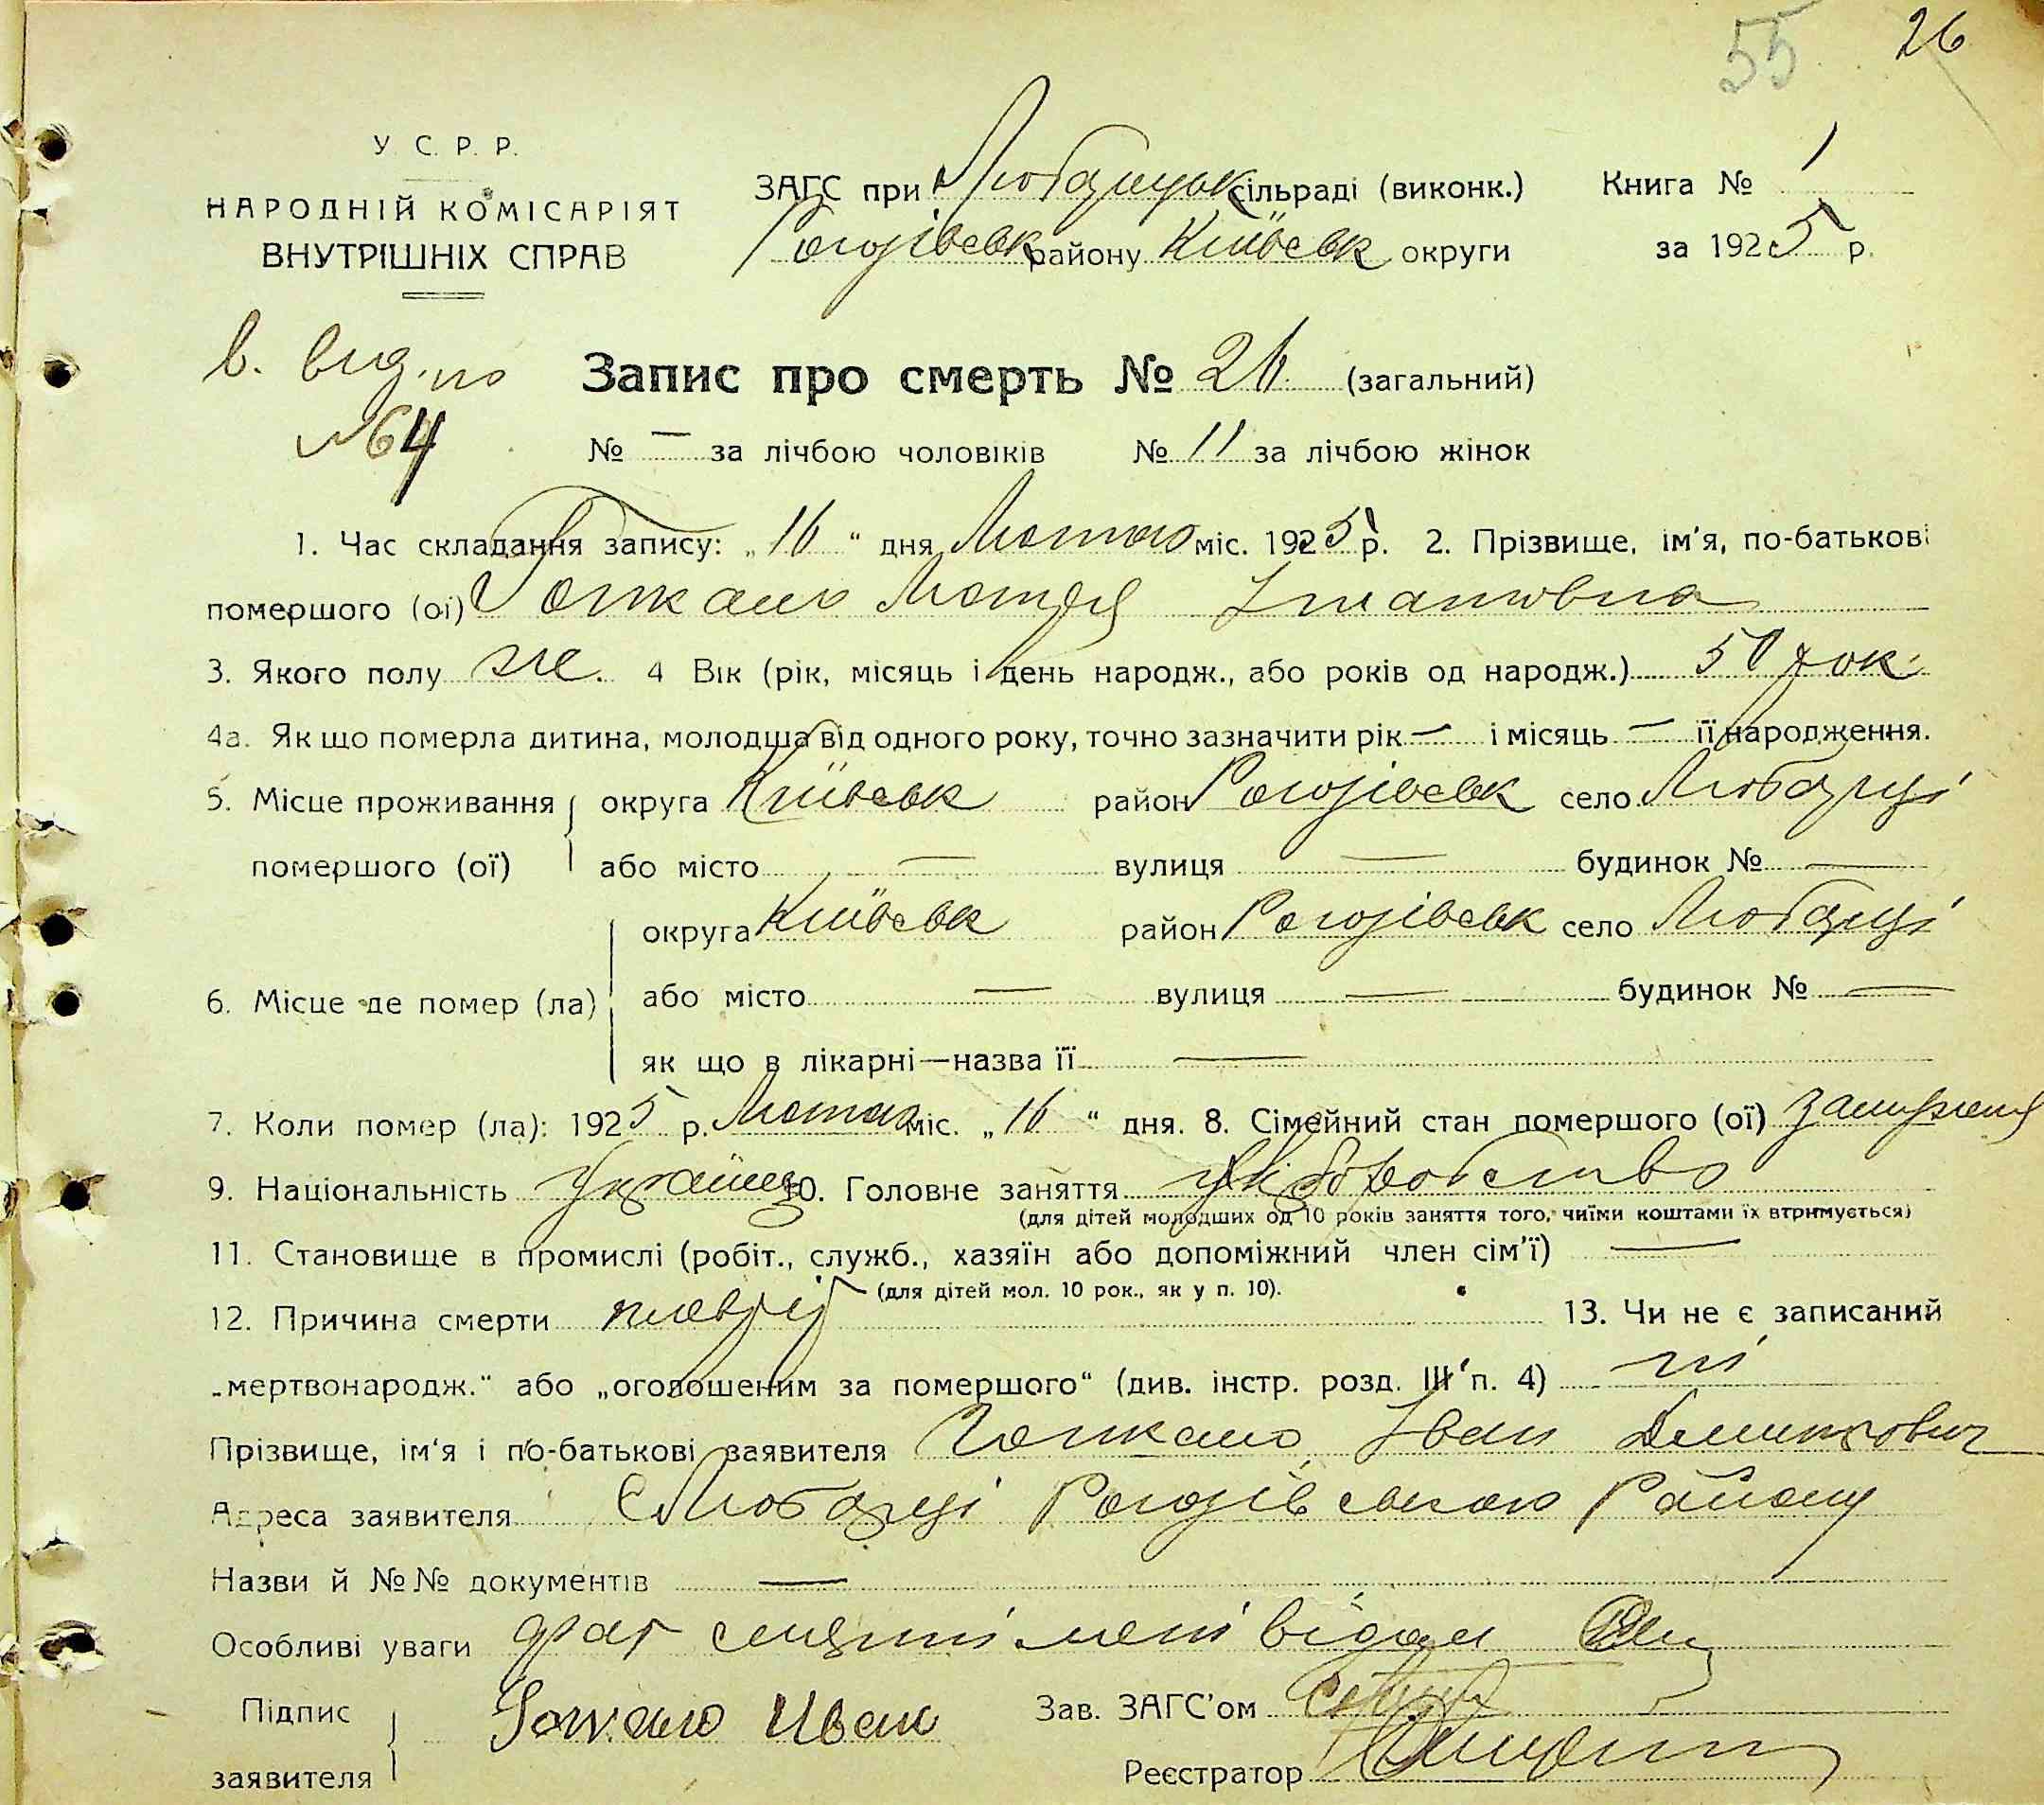 55 26
У. С. Р. Р.
НАРОДНІЙ КОМІСАРІЯТ
ВНУТРІШНІХ СПРАВ
ЗАГС при Любарцьк сільраді (виконк.) Книга № 1
Рогозівськ району Київськ округи за 1925 р.
№ 64
Запис про смерть № 26 (загальний)
№ — за лічбою чоловіків № 11 за лічбою жінок
1. Час складання запису: „16“ дня Лютого міс. 1925 р. 2. Прізвище, ім'я, по-батькові
помершого (ої) Гопкало Мотря
3. Якого полу же. 4 Вік (рік, місяць і день народж., або років од народж.) 50 рок.
4а. Як що померла дитина, молодша від одного року, точно зазначити рік — і місяць — її народження.
5. Місце проживання помершого (ої) округа Київськ район Рогозівськ село Любарці
або місто — вулиця — будинок № —
6. Місце де помер (ла) округа Київськ район Рогозівськ село Любарці
або місто — вулиця — будинок № —
як що в лікарні—назва її —
7. Коли помер (ла): 1925 р. Лютого міс. „16“ дня. 8. Сімейний стан помершого (ої) замужня
9. Національність Українц 10. Головне заняття хліборобство
(для дітей молодших од 10 років заняття того, чиїми коштами їх втримується)
11. Становище в промислі (робіт., служб., хазяїн або допоміжний член сім'ї) —
(для дітей мол. 10 рок., як у п. 10).
12. Причина смерти плевріт 13. Чи не є записаний
„мертвонародж.“ або „оголошеним за помершого“ (див. інстр. розд. III п. 4) ні
Прізвище, ім'я і по-батькові заявителя Гопкало Іван Дмитрович
Адреса заявителя с Любарці Рогозівського Району
Назви й №№ документів —
Особливі уваги факт смерти мені відом
Підпис заявителя Гопкало Иван Зав. ЗАГС'ом
Реєстратор